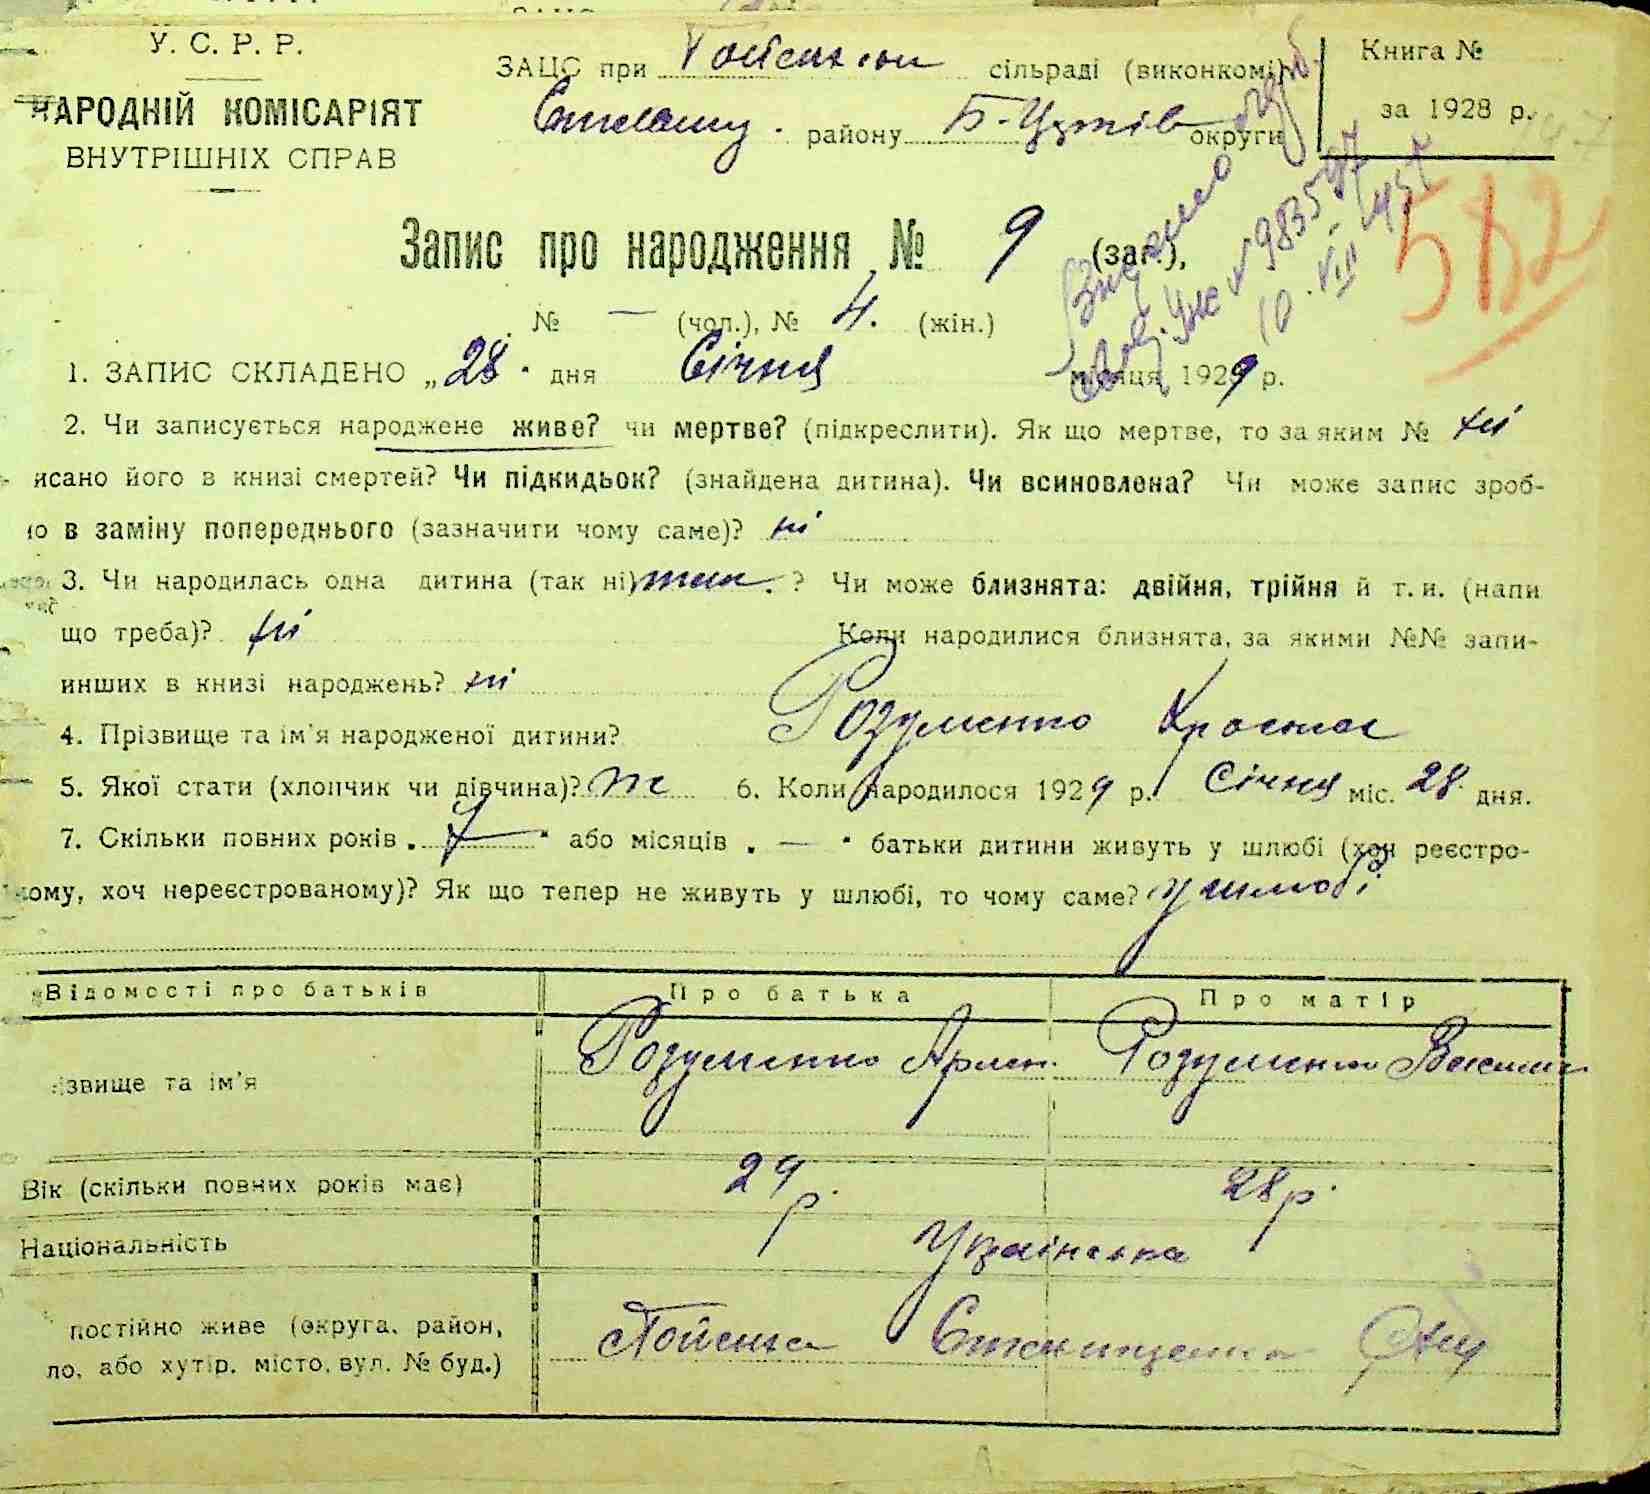 У. С. Р. Р.
НАРОДНІЙ КОМІСАРІЯТ
ВНУТРІШНІХ СПРАВ
ЗАЦС при сільраді (виконкомі)
району Б-Церків округи
Книга №
за 1928 р.
582
Запис про народження № 9 (заг.),
№ — (чол.), № 4. (жін.)
1. ЗАПИС СКЛАДЕНО „28" дня Січня місяця 1929 р.
2. Чи записується народжене живе? чи мертве? (підкреслити). Як що мертве, то за яким № ні
исано його в книзі смертей? Чи підкидьок? (знайдена дитина). Чи всиновлена? Чи може запис зроб-
ю в заміну попереднього (зазначити чому саме)? ні
3. Чи народилась одна дитина (так ні) так. ? Чи може близнята: двійня, трійня й т. и. (напи
що треба)? ні Коли народилися близнята, за якими №№ запи-
инших в книзі народжень? ні
4. Прізвище та ім'я народженої дитини? Розуменко
5. Якої стати (хлопчик чи дівчина)? ж 6. Коли народилося 1929 р. Січня міс. 28 дня.
7. Скільки повних років „ 7 " або місяців „ — " батьки дитини живуть у шлюбі (хоч реєстро-
ому, хоч нереєстрованому)? Як що тепер не живуть у шлюбі, то чому саме? у шлюбі
Відомості про батьків Про батька Про матір
ізвище та ім'я Розуменко Розуменко
Вік (скільки повних років має) 29 р. 28 р.
Національність Українська
постійно живе (округа, район,
ло, або хутір, місто, вул. № буд.)